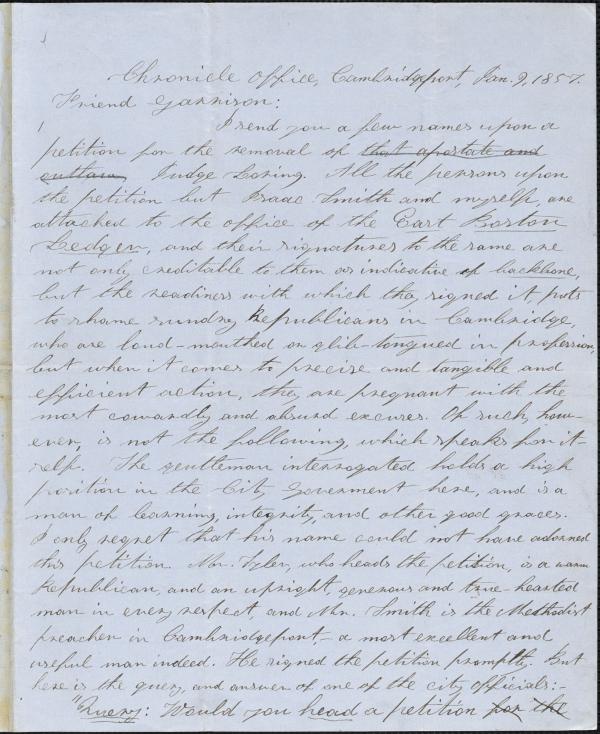 Chronicle Office, Cambridgeport, Jan. 9, 1857.
Friend Garrison:
I send you a few names upon a
petition for the removal of that apostate and
outlaw Judge Loring. All the persons upon
the petition but Isaac Smith and myself, are
attached to the office of the East Boston
Ledger, and their signatures to the same are
not only creditable to them as indicative of backbone,
but the readiness with which they signed it, puts
to shame sundry Republicans in Cambridge,
who are loud-mouthed or glib-tongued in profession,
but when it comes to precise and tangible and
efficient action, they are pregnant with the
most cowardly and absurd excuses. Of such, how-
ever, is not the following, which speaks for it-
self. The gentleman interrogated holds a high
position in the City Goverment here, and is a
man of learning, integrity, and other good graces.
I only regret that his name could not have adorned
this petition. Mr. Tyler, who heads the petition, is a warm
Republican, and an upright, generous and true-hearted
man in every respect, and Mr. Smith is the Methodist
preacher in Cambridgeport,- a most excellent and
useful man indeed. He signed the petition promptly. But
here is the query, and answer of one of the city officials:-
"Query: Would you head a petition for the